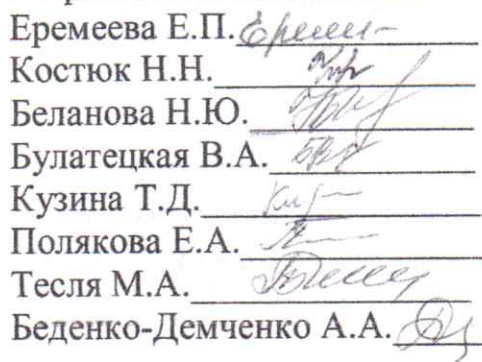 Еремеева Е.П.
Костюк Н.Н.
Беланова Н.Ю.
Булатецкая В.А.
Кузина Т.Д.
Полякова Е.А.
Тесля М.А.
Беденко-Демченко А.А.